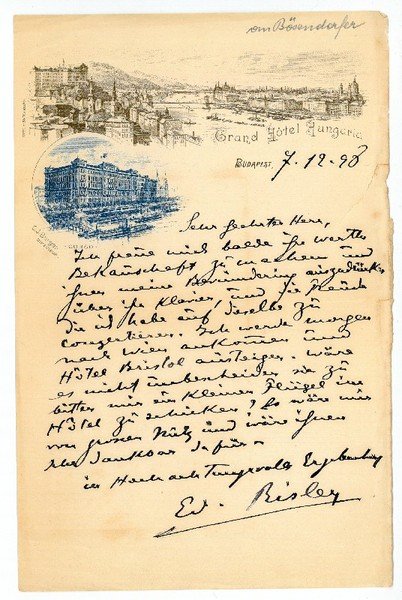 am Bösendorfer
Grand Hôtel Hungaria
BUDAPEST, 7.12.98
Sehr geehrter Herr,
Ich freue mich balde ihre werthe
Bekanschaft zu machen und
ihnen meine Bewunderung auszudrücken
über ihr Klavier, und die Freude
die ich habe auf dieselbe zu
conzertieren. Ich werde morgen
nach Wien ankommen und
Hôtel Bristol absteigen. Wäre
es nicht unbescheiden sie zu
bitten mir ein kleines Flügel im
Hôtel zu schicken? Es wäre mir
von grossen Nütz und wäre ihnen
sehr dankbar dafür.
in Hochachtungsvoll Ergebenheit
Ed. Risler